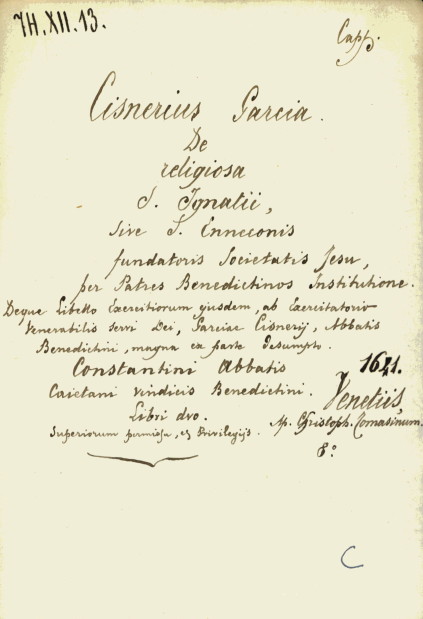 7H.XII.13.
Capp.
Cisnerius Garcia.
De
religiosa
S. Ignatii,
sive S. Enneconis
fundatoris Societatis Jesu,
per Patres Benedictinos Institutione.
Deque Libello Exercitiorum ejusdem, ab Exercitatorio
Venerabilis servi Dei, Garciae Cisnerij, Abbatis
Benedictini, magna ex parte desumpto.
Constantini Abbatis
1641.
Caietani vindicis Benedictini.
Venetiis,
Libri dvo.
Ap. Christoph. Tomasinum.
Superiorum permissu, et Privilegijs.
8°
C